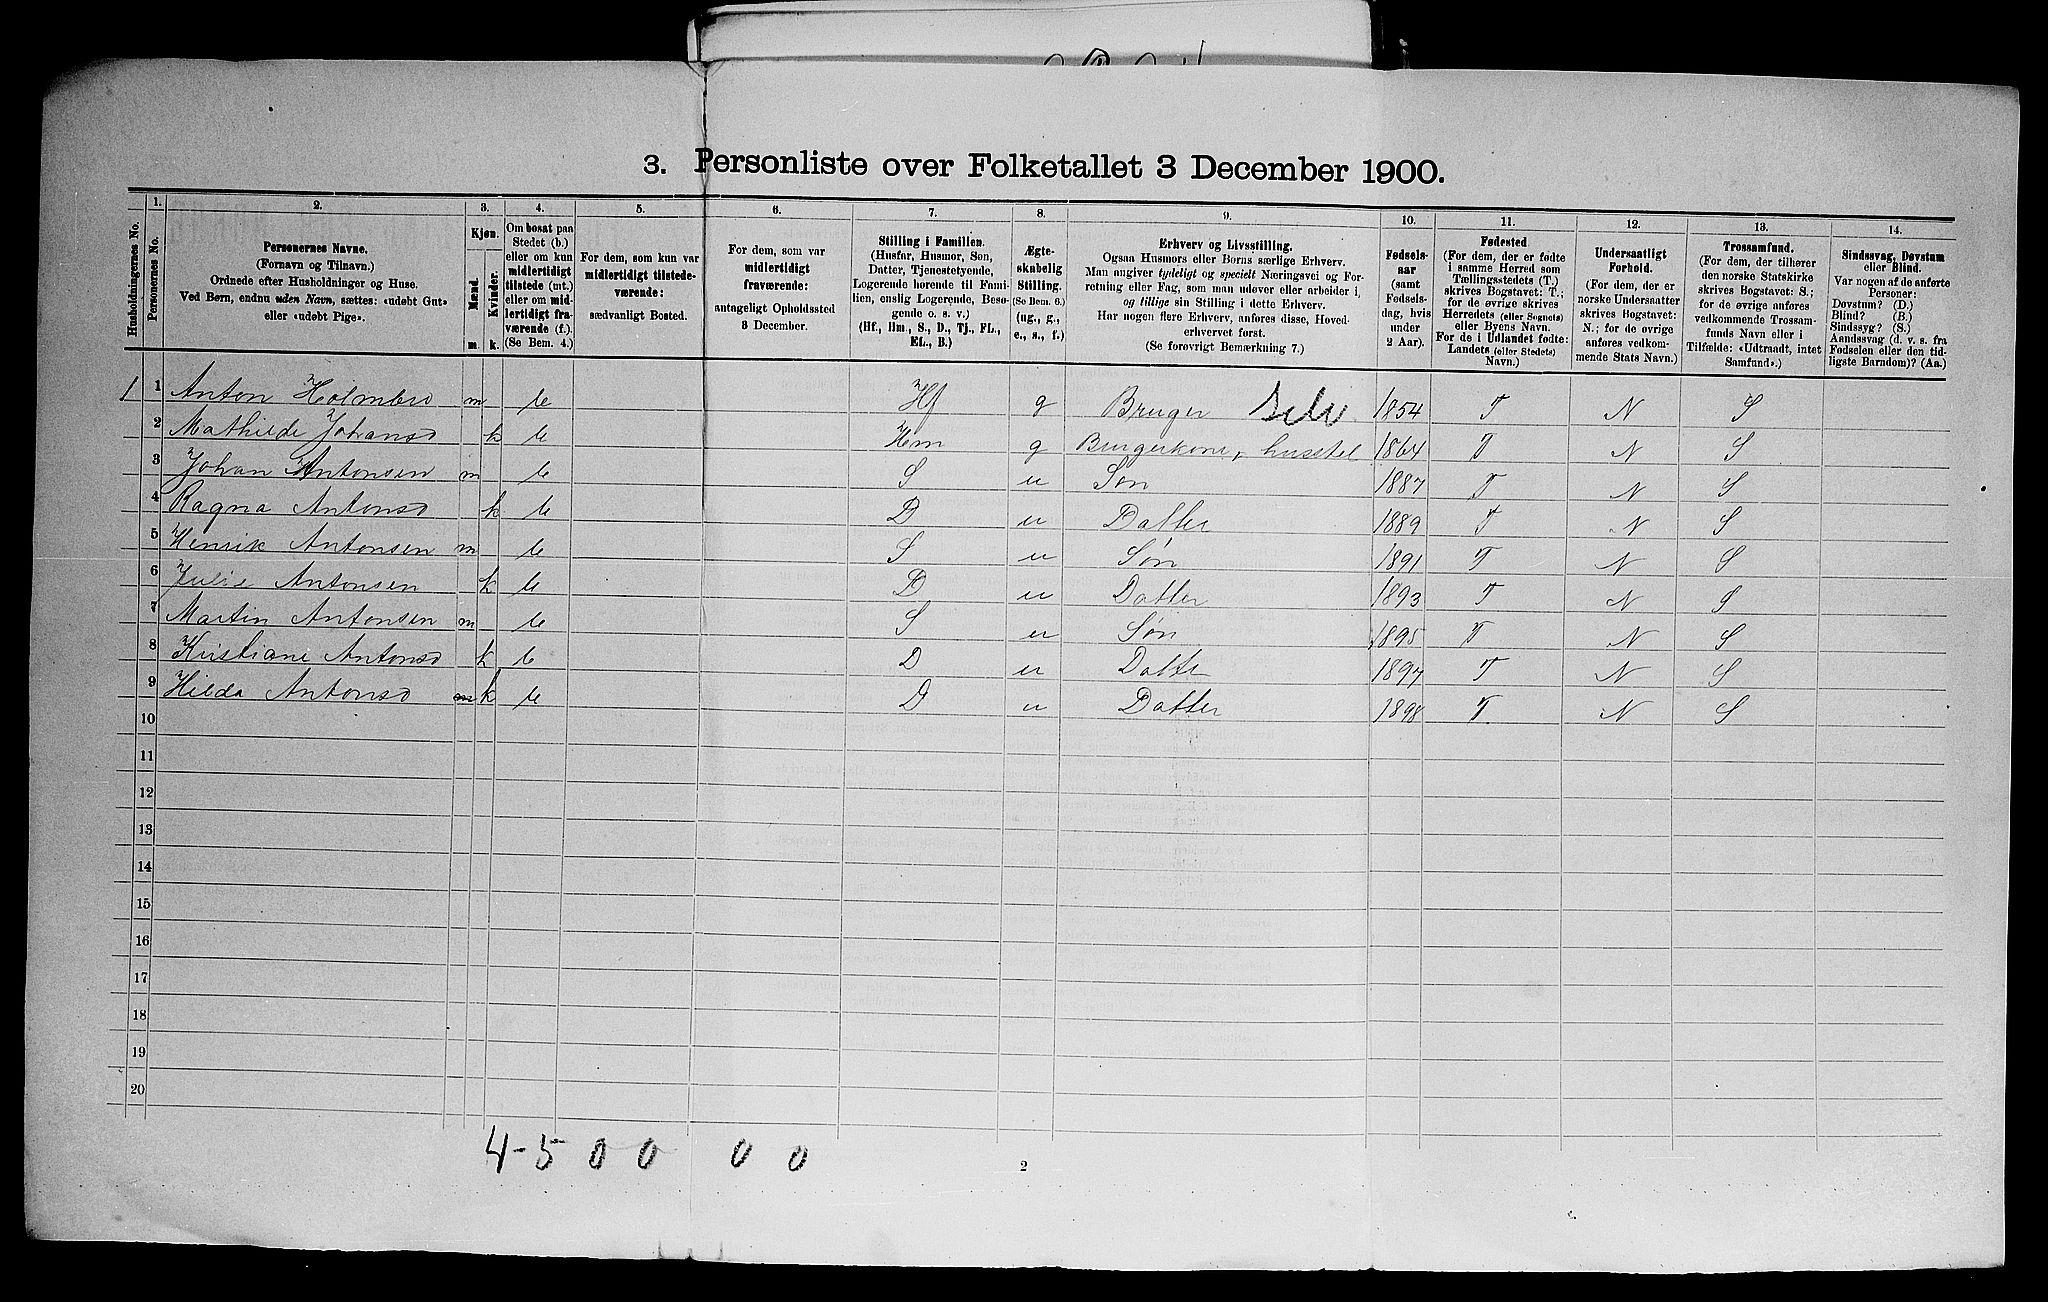 3. Personliste over Folketallet 3 December 1900.
1. 2. 3. 4. 5. 6. 7. 8. 9. 10. 11. 12. 13. 14.
Husholdningernes No.
Personernes No.
Personernes Navne.
(Fornavn og Tilnavn.)
Ordnede efter Husholdninger og Huse.
Ved Børn, endnu uden Navn, sættes: «udøbt Gut»
eller «udøbt Pige».
Kjøn.
Mænd.
Kvinder.
m. k.
Om bosat paa
Stedet (b.)
eller om kun
midlertidigt
tilstede (mt.)
eller om mid-
lertidigt fra-
værende (f.).
(Se Bem. 4.)
For dem, som kun
midlertidigt tilstede-
værende:
sædvanligt Bosted.
For dem, som var
midlertidigt
fraværende:
antageligt Opholdssted
3 December.
Stilling i Familien.
(Husfar, Husmor, Søn,
Datter, Tjenestetyende,
Logerende hørende til Fami-
lien, enslig Logerende, Besø-
gende o. s. v.)
(Hf., Hm., S., D., Tj., FL.,
EL., B.)
Ægte-
skabelig
Stilling.
(Se Bem. 6.)
(ug., g.,
e., s., f.)
Erhverv og Livsstilling.
Ogsaa Husmors eller Børns særlige Erhverv.
Man angiver tydeligt og specielt Næringsvei og For-
retning eller Fag, som man udøver eller arbeider i,
og tillige sin Stilling i dette Erhverv.
Har nogen flere Erhverv, anføres disse, Hoved-
erhvervet først.
(Se forøvrigt Bemærkning 7.)
Fødsels-
aar
(samt
Fødsels-
dag, hvis
under
2 Aar).
Fødested
(For dem, der er fødte
i samme Herred som
Tællingsstedets (T.)
skrives Bogstavet: T.;
for de øvrige skrives
Herredets (eller Sognets)
eller Byens Navn.
For de i Udlandet fødte:
Landets (eller Stedets)
Navn.)
Undersaatligt
Forhold.
(For dem, der er
norske Undersaatter
skrives Bogstavet:
N.; for de øvrige
anføres vedkom-
mende Stats Navn.)
Trossamfund.
(For dem, der tilhører
den norske Statskirke
skrives Bogstavet: S.;
for de øvrige anføres
vedkommende Trossam-
funds Navn eller i
Tilfælde: «Udtraadt, intet
Samfund».)
Sindssvag, Døvstum
eller Blind.
Var nogen af de anførte
Personer:
Døvstum? (D.)
Blind? (B.)
Sindssyg? (S.)
Aandssvag (d. v. s. fra
Fødselen eller den tid-
ligste Barndom)? (Aa.)
1 1 Anton m b Hf g Bruger Selv 1854 T N S
2 Mathilde Johansd k b Hm g husstel 1864 T N S
3 Johan Antonsen m b S u Søn 1887 T N S
4 Ragna Antonsd k b D u Datter 1889 T N S
5 Henrik Antonsen m b S u Søn 1891 T N S
6 Julie Antonsen k b D u Datter 1893 T N S
7 Martin Antonsen m b S u Søn 1895 T N S
8 Kristiane Antonsd k b D u Datter 1897 T N S
9 Hilda Antonsd m k b D u Datter 1898 T. N S
10
11
12
13
14
15
16
17
18
19
20
4-5 0 0 0 0
2